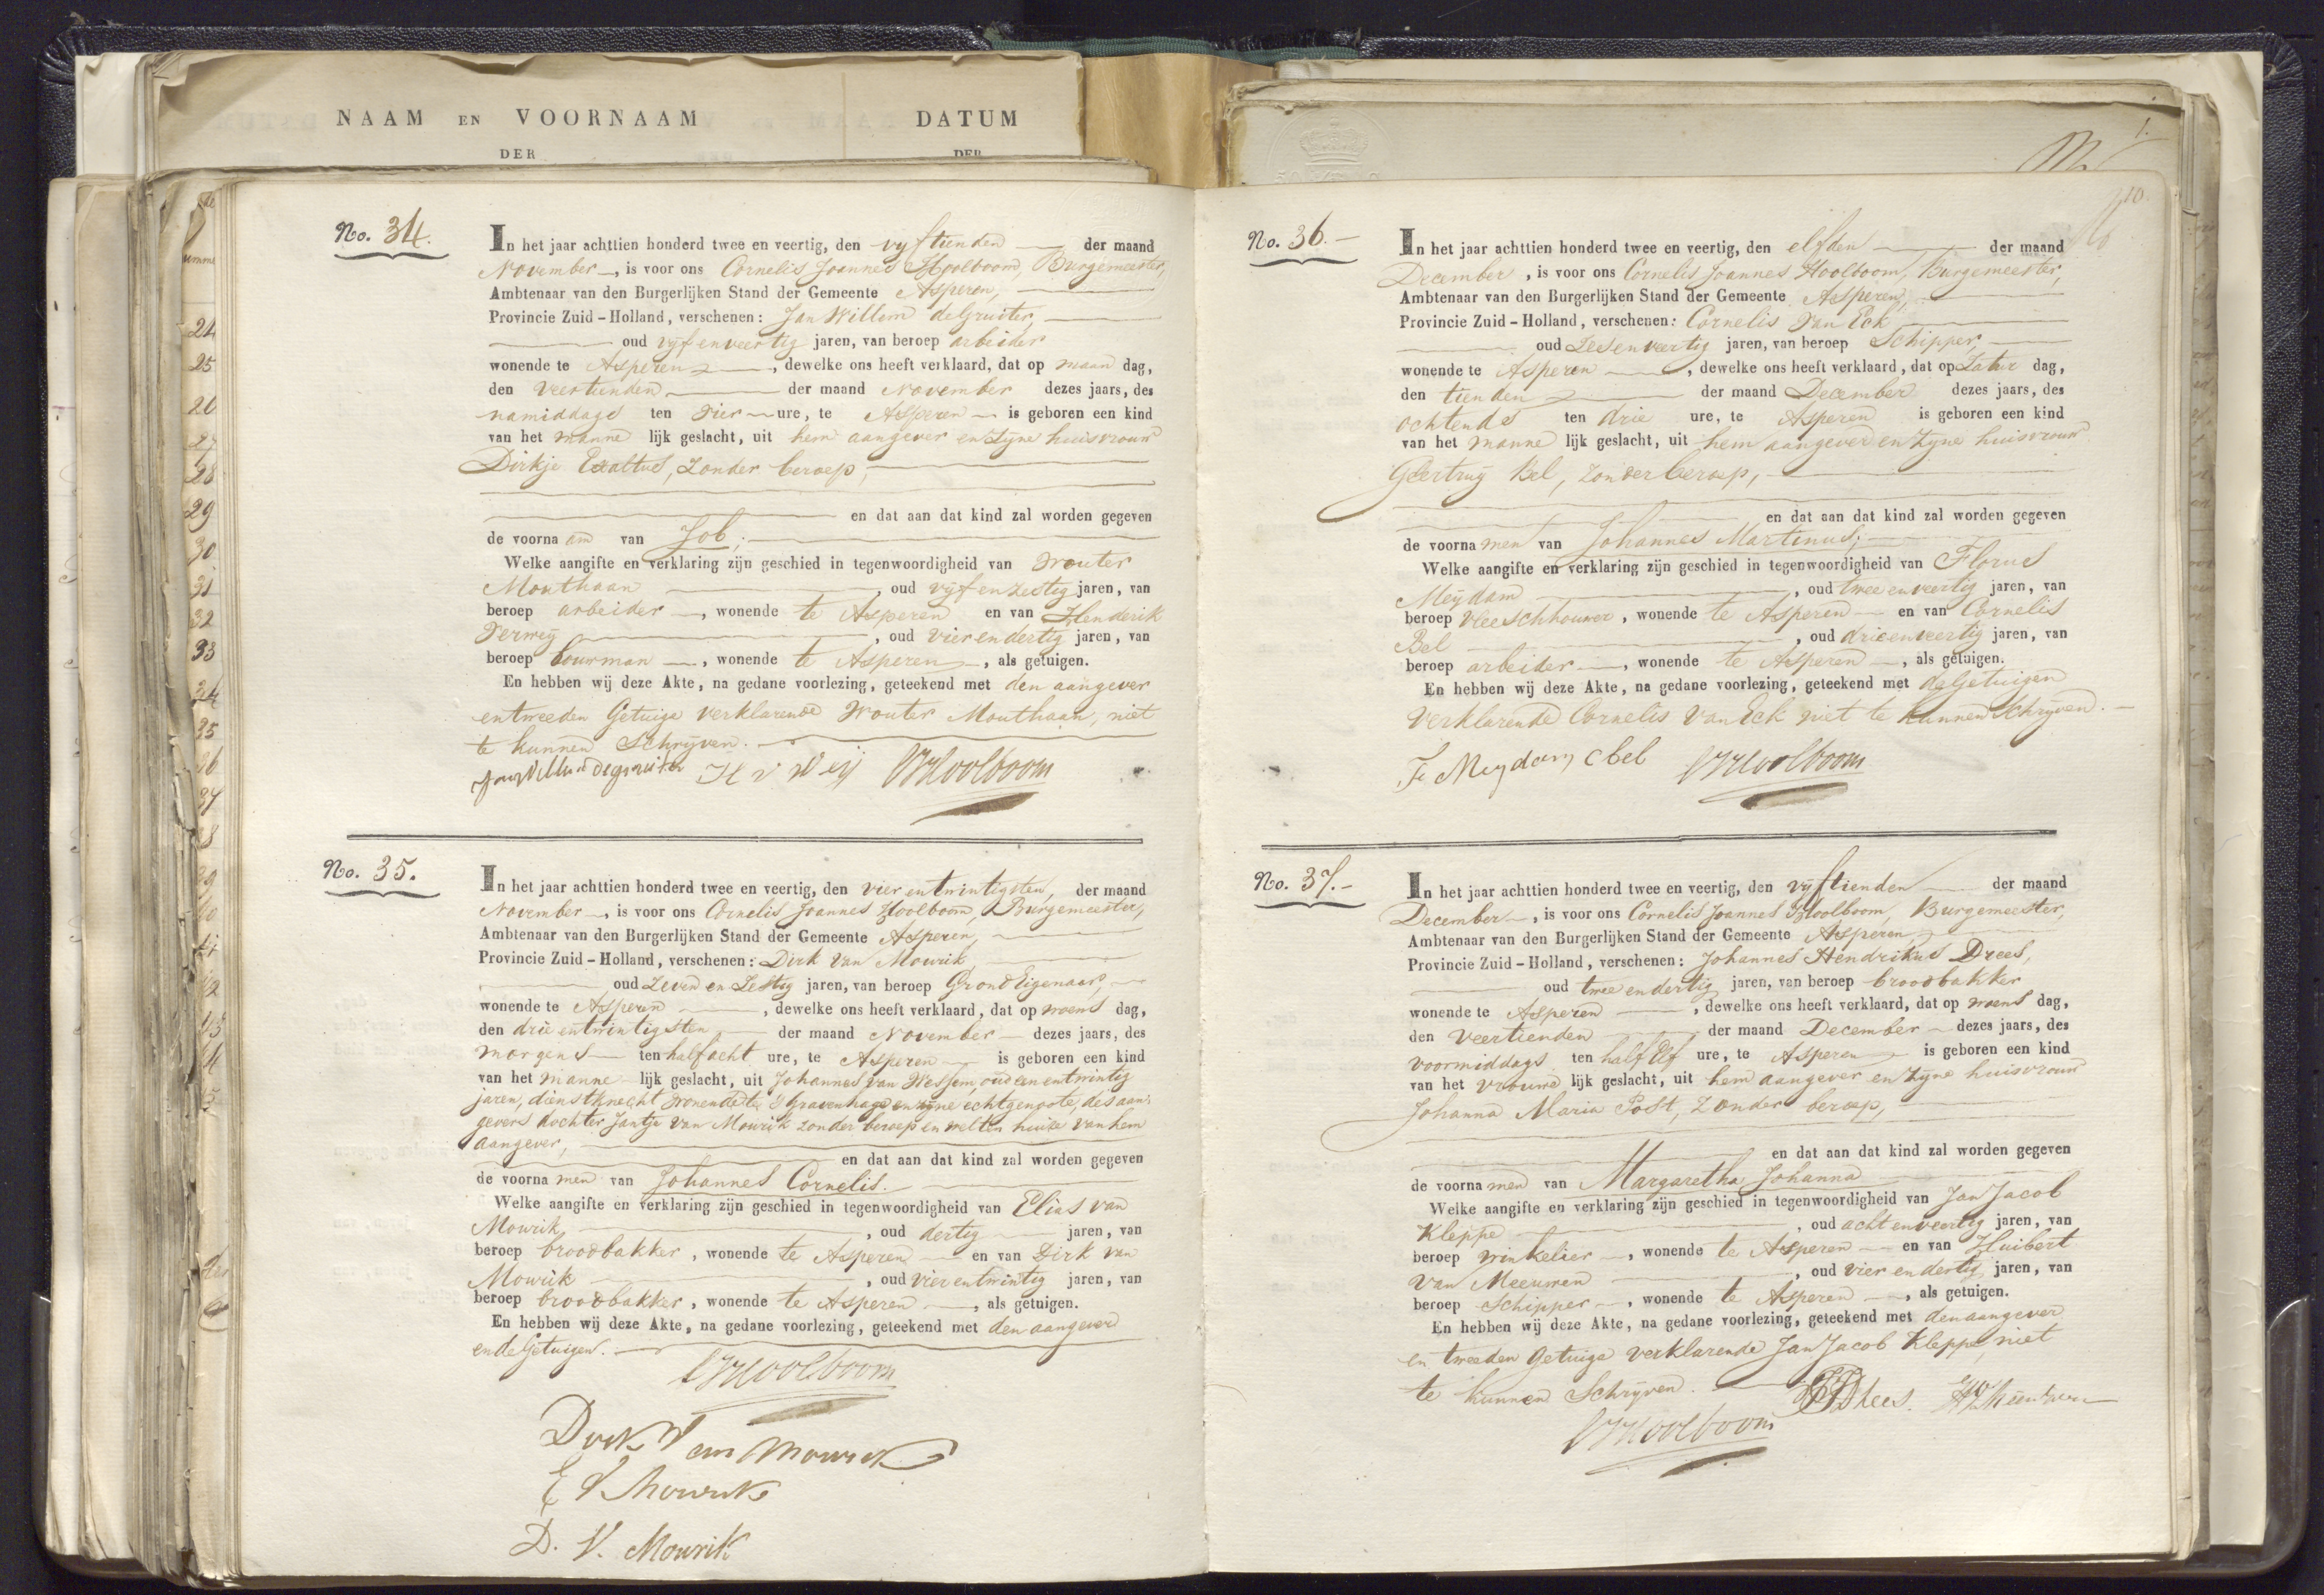 NAAM EN VOORNAAM
DATUM
DER
DER
No. 34.
In het jaar achttien honderd twee en veertig, den vyftienden der maand
November, is voor ons Cornelis Joannes Hoolboom, Burgemeester,
Ambtenaar van den Burgerlijken Stand der Gemeente Asperen,
Provincie Zuid-Holland, verschenen: Jan Willem de Gruiter,
oud vyf en veertig jaren, van beroep arbeider
wonende te Asperen, dewelke ons heeft verklaard, dat op maan dag,
den veertienden der maand November dezes jaars, des
namiddags ten vier ure, te Asperen is geboren een kind
van het manne lijk geslacht, uit hem aangever en zyne huisvrouw
Dirkje Exaltus, zonder beroep,
en dat aan dat kind zal worden gegeven
de voorna am van Job;
Welke aangifte en verklaring zijn geschied in tegenwoordigheid van Wouter
Mouthaan, oud vyf en zestig jaren, van
beroep arbeider, wonende te Asperen en van Henderik
Verwey, oud vier en dertig jaren, van
beroep bouwman, wonende te Asperen, als getuigen.
En hebben wij deze Akte, na gedane voorlezing, geteekend met den aangever
en tweeden Getuige verklarende Wouter Mouthaan, niet
te kunnen Schryven.
Jan Willem de gruiter H v Weij CJHoolboom
No. 35.
In het jaar achttien honderd twee en veertig, den vier en twintigsten, der maand
November, is voor ons Cornelis Joannes Hoolboom, Burgemeester,
Ambtenaar van den Burgerlijken Stand der Gemeente Asperen,
Provincie Zuid-Holland, verschenen: Dirk van Mowrik,
oud Zeven en Zestig jaren, van beroep Grond Eigenaar,
wonende te Asperen, dewelke ons heeft verklaard, dat op woens dag,
den drie en twintigsten der maand November dezes jaars, des
morgens ten half acht ure, te Asperen is geboren een kind
van het manne lijk geslacht, uit Johannes van Wessem, oud een en twintig
jaren, dienstknecht wonende te 's Gravenhage en zyne echtgenoote, des aan-
gevers dochter Jantje van Mowrik zonder beroep en wel ten huize van hem
aangever,
en dat aan dat kind zal worden gegeven
de voorna men van Johannes Cornelis.
Welke aangifte en verklaring zijn geschied in tegenwoordigheid van Elias van
Mowrik, oud dertig jaren, van
beroep broodbakker, wonende te Asperen en van Dirk van
Mowrik, oud vier en twintig jaren, van
beroep broodbakker, wonende te Asperen, als getuigen.
En hebben wij deze Akte, na gedane voorlezing, geteekend met den aangever
en de Getuigen.
CJHoolboom
Dirk Van Mowrik
E V Mowrik
D. V. Mowrik
10.
No. 36.
In het jaar achttien honderd twee en veertig, den elfden der maand
December, is voor ons Cornelis Joannes Hoolboom, Burgemeester,
Ambtenaar van den Burgerlijken Stand der Gemeente Asperen,
Provincie Zuid-Holland, verschenen: Cornelis van Eck
oud Zes en veertig jaren, van beroep Schipper,
wonende te Asperen, dewelke ons heeft verklaard, dat op Zatur dag,
den tienden der maand December dezes jaars, des
ochtends ten drie ure, te Asperen is geboren een kind
van het manne lijk geslacht, uit hem aangever en zyne huisvrouw
Geertruy Bel, zonder beroep,
en dat aan dat kind zal worden gegeven
de voorna men van Johannes Martinus;
Welke aangifte en verklaring zijn geschied in tegenwoordigheid van Florus
Meydam, oud twee en veertig jaren, van
beroep vleeschhouwer, wonende te Asperen en van Cornelis
Bel, oud drie en veertig jaren, van
beroep arbeider, wonende te Asperen, als getuigen.
En hebben wij deze Akte, na gedane voorlezing, geteekend met de Getuigen
verklarende Cornelis van Eck niet te kunnen schryven.
F. Meydam C bel CJHoolboom
No. 37.
In het jaar achttien honderd twee en veertig, den vyftienden der maand
December, is voor ons Cornelis Joannes Hoolboom, Burgemeester,
Ambtenaar van den Burgerlijken Stand der Gemeente Asperen,
Provincie Zuid-Holland, verschenen: Johannes Hendrikus Drees,
oud twee en dertig jaren, van beroep broodbakker
wonende te Asperen, dewelke ons heeft verklaard, dat op woens dag,
den veertienden der maand December dezes jaars, des
voormiddags ten half Elf ure, te Asperen is geboren een kind
van het vrouwe lijk geslacht, uit hem aangever en zyne huisvrouw
Johanna Maria Post, zonder beroep,
en dat aan dat kind zal worden gegeven
de voorna men van Margaretha Johanna
Welke aangifte en verklaring zijn geschied in tegenwoordigheid van Jan Jacob
Kleppe, oud acht en veertig jaren, van
beroep winkelier, wonende te Asperen en van Huibert
van Meeuwen, oud vier en dertig jaren, van
beroep Schipper, wonende te Asperen, als getuigen.
En hebben wij deze Akte, na gedane voorlezing, geteekend met den aangever
en tweeden getuige verklarende Jan Jacob Kleppe, niet
te kunnen Schryven. JHDrees.
CJHoolboom